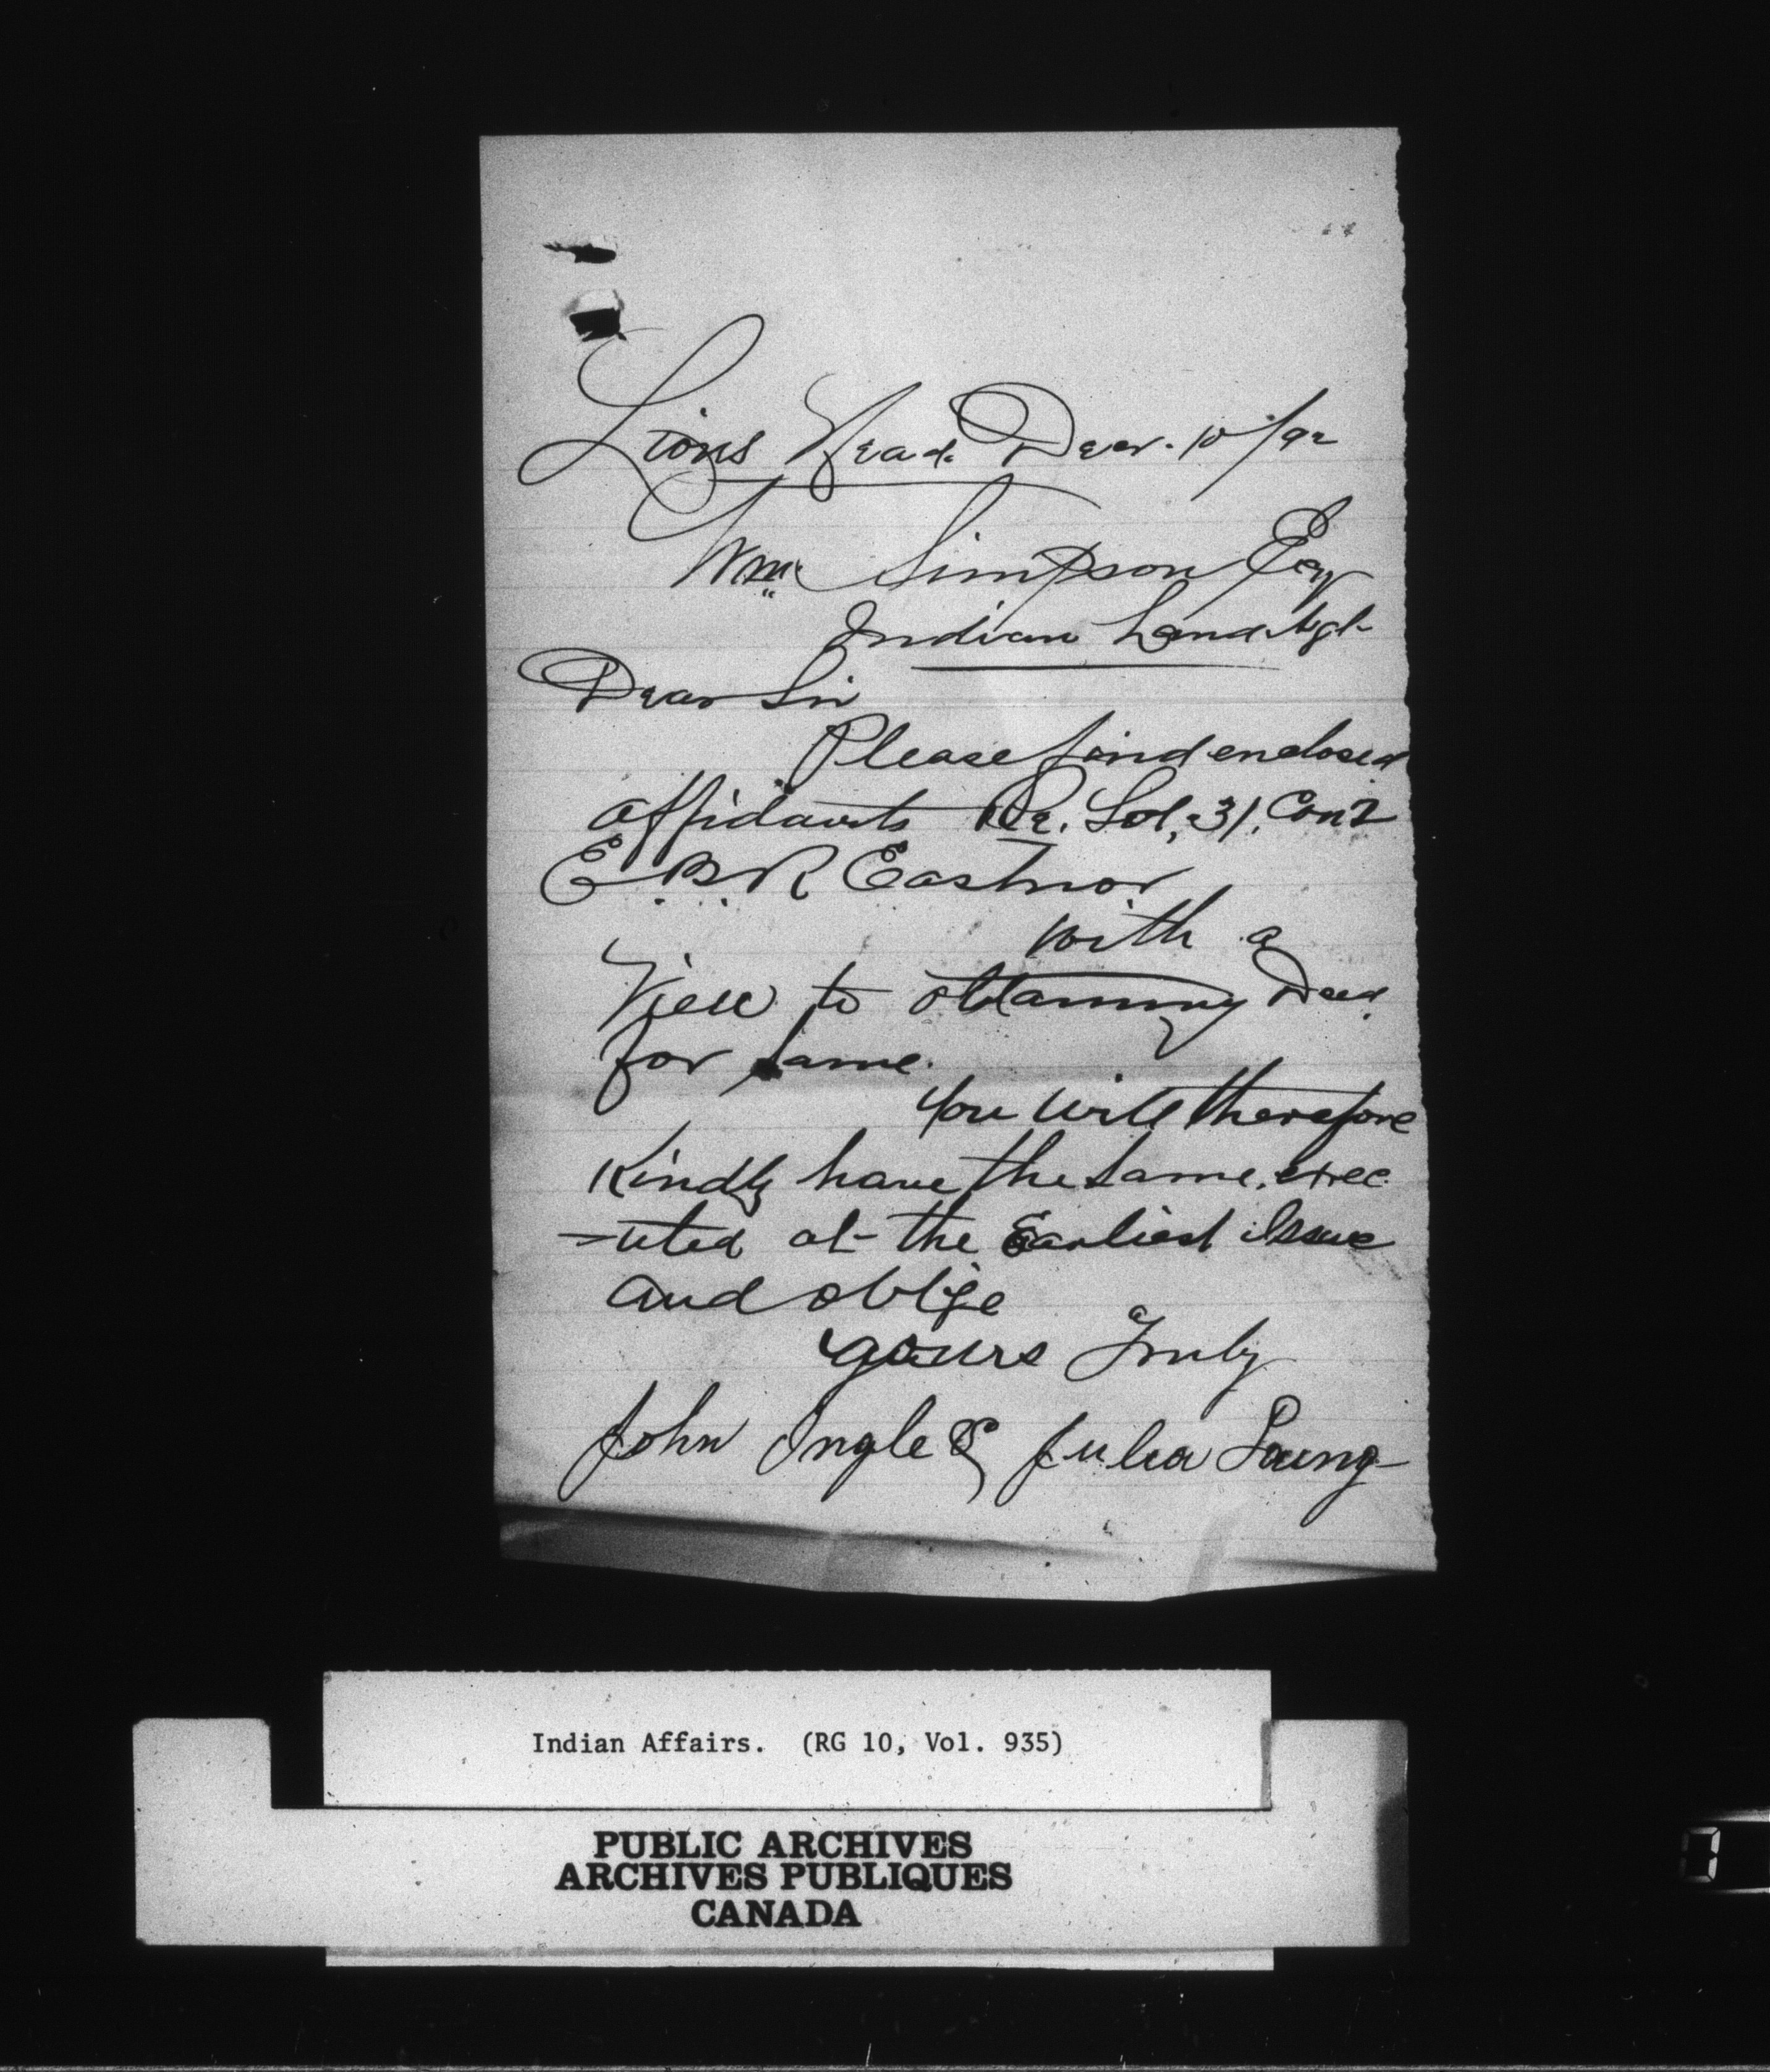 Lions Head Decr. 10/92
Wm Simpson Esq
Indian Land Agt
Dear Sir
Please find enclosed
affidavits Re. Lot, 31, Con 2
E. B. R Eastnor
with a
View to obtaining Deed
for same.
You will therefore
Kindly have the same exec
-uted at the Earliest Issue
and oblige
yours Truly
John Ingle & Julia Young
Indian Affairs. (RG 10, Vol. 935)
PUBLIC ARCHIVES
ARCHIVES PUBLIQUES
CANADA